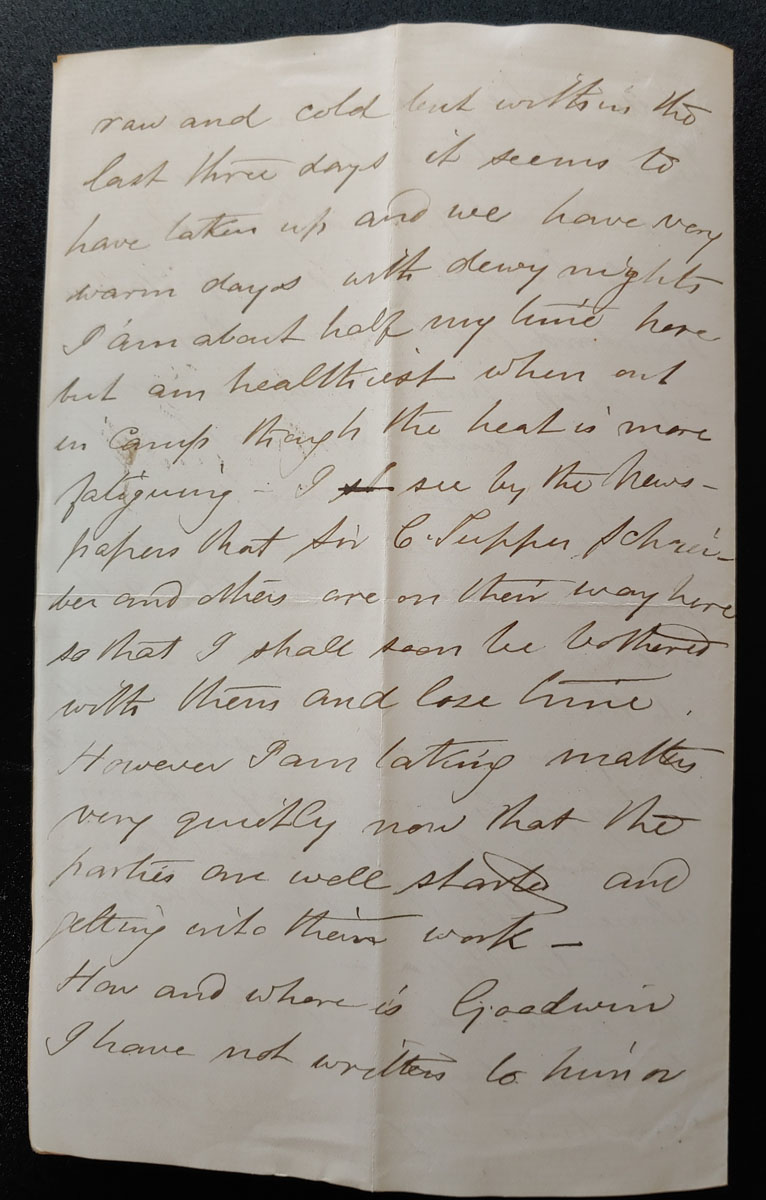 raw and cold but within the
last three days it seems to
have taken up and we have very
warm days with dewy nights
I am about half my time here
but am healthiest when out
in Camp though the heat is more
fatiguing - I see by the News-
papers that Sir C. Tupper Schrei-
ber and others are on their way here
so that I shall soon be bothered
with them and lose time.
However I am taking matters
very quietly now that the
parties are well started and
getting into their work -
How and where is Goodwin
I have not written to him or